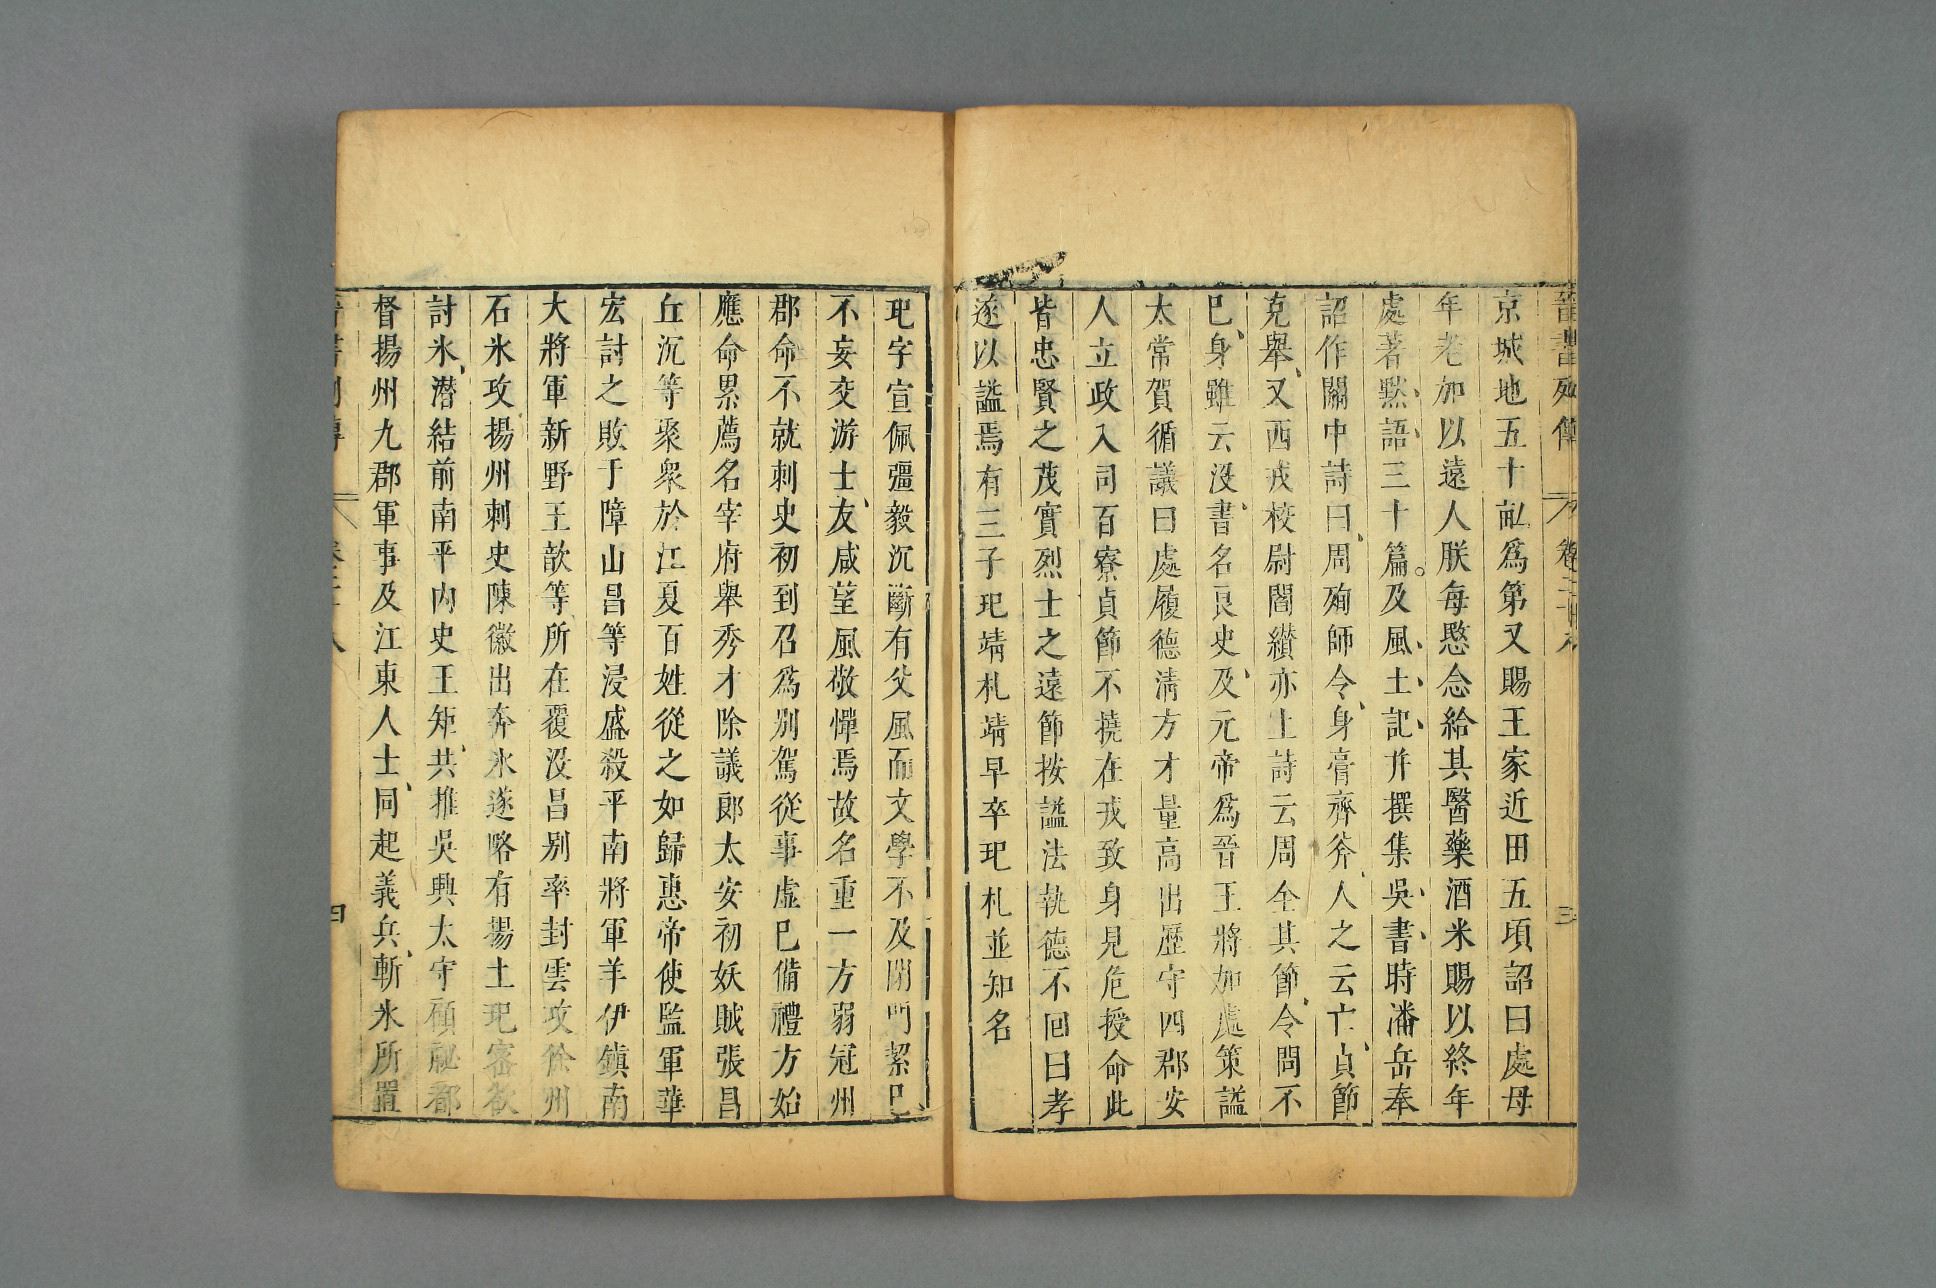 晉書列傳 卷二十八 三
京城地五十畝爲第又賜王家近田五頃詔曰處母
年老加以遠人朕每愍念給其醫藥酒米賜以終年
處著黙語三十篇及風土記并撰集吳書時潘岳奉
詔作關中詩曰周殉師令身膏齊斧人之云亡貞節
克舉又西戎校尉閻纘亦上詩云周全其節令問不
已身雖云沒書名良史及元帝爲晉王將加處策諡
太常賀循議曰處履德清方才量高出歷守四郡安
人立政入司百寮貞節不撓在戎致身見危授命此
皆忠賢之茂實烈士之遠節按諡法執德不回曰孝
遂以諡焉有三子玘靖札靖早卒玘札並知名
玘字宣佩彊毅沉斷有父風而文學不及閉門絜已
不妄交游士友咸望風敬憚焉故名重一方弱冠州
郡命不就刺史初到召爲別駕從事虛已備禮方始
應命累薦名宰府舉秀才除議郎太安初妖賊張昌
丘沉等聚衆於江夏百姓從之如歸惠帝使監軍華
宏討之敗于障山昌等浸盛殺平南將軍羊伊鎮南
大將軍新野王歆等所在覆沒昌別率封雲攻徐州
石氷攻揚州刺史陳徽出奔氷遂略有揚土玘密欲
討氷潛結前南平內史王矩共推吳興太守顧祕都
督揚州九郡軍事及江東人士同起義兵斬氷所置
晉書列傳 卷二十八 四